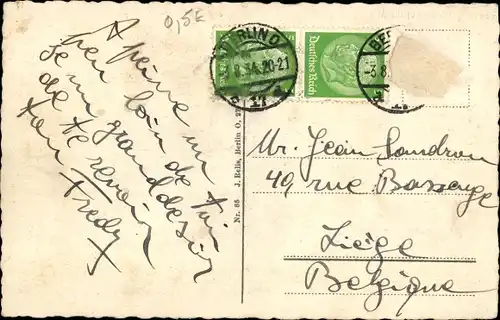 0,5€
A peine un
peu loin de toi
Je un grand desir
de te revoir
ton Fredy
BERLIN O
8.34.20-21
17
Deutsches Reich
BER
-3.8.
Nr. 86 J. Belik, Berlin O.
Mr. Jean Landron
49, rue Bassenge
Liège
Belgique